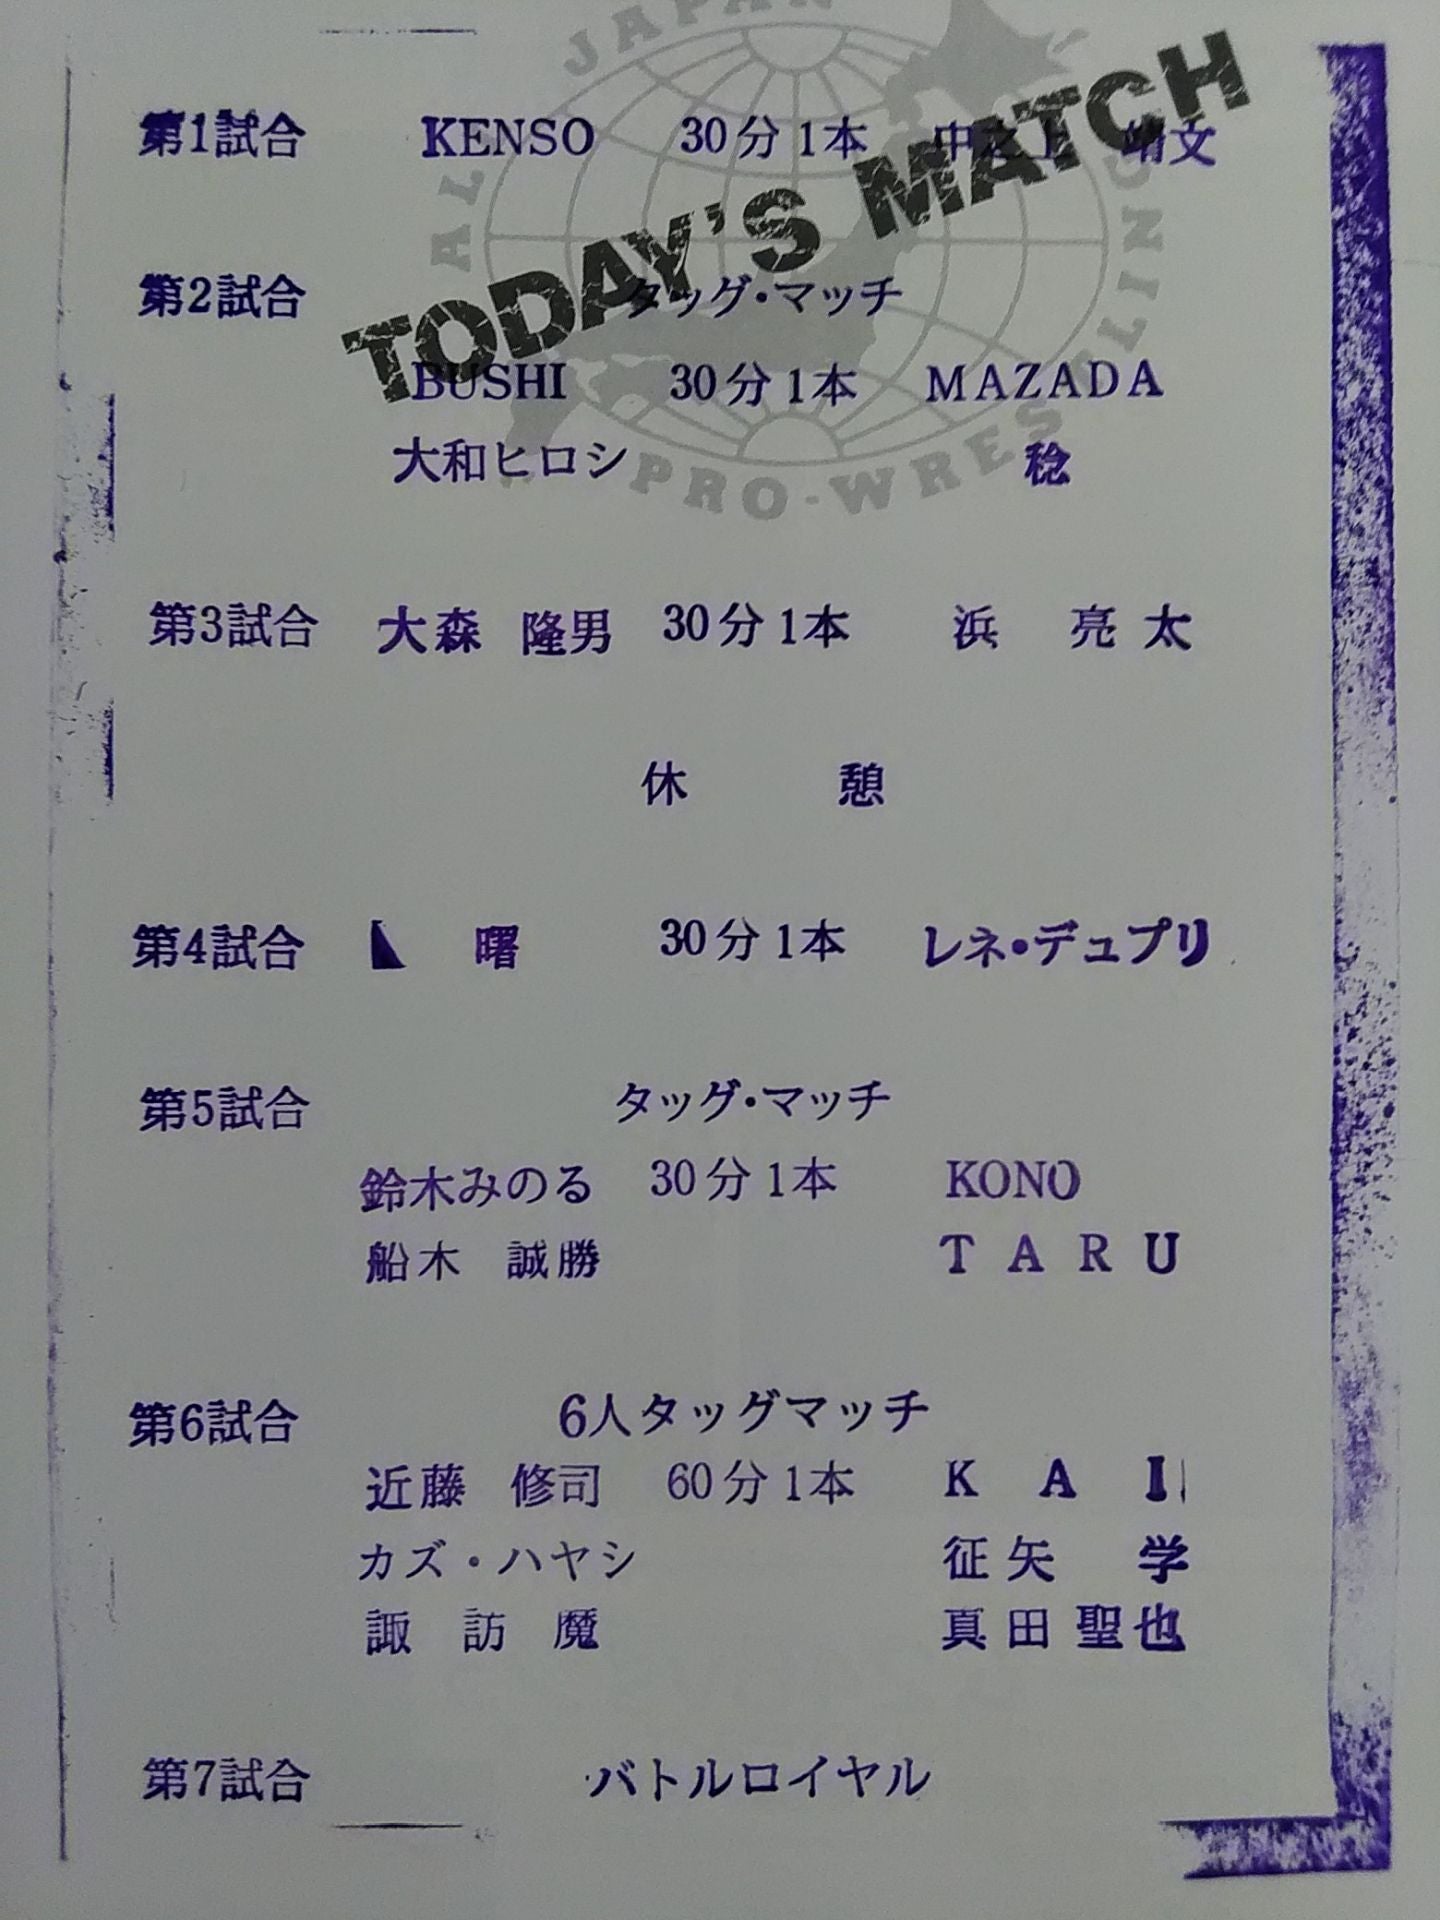 ALL JAPAN PRO-WRESTLING
TODAY'S MATCH
第1試合 KENSO 30分1本 中之上 靖文
第2試合 タッグ・マッチ
BUSHI 30分1本 MAZADA
大和ヒロシ 稔
第3試合 大森 隆男 30分1本 浜 亮太
休 憩
第4試合 曙 30分1本 レネ・デュプリ
第5試合 タッグ・マッチ
鈴木みのる 30分1本 KONO
船木 誠勝 TARU
第6試合 6人タッグマッチ
近藤 修司 60分1本 KAI
カズ・ハヤシ 征矢 学
諏訪魔 真田聖也
第7試合 バトルロイヤル